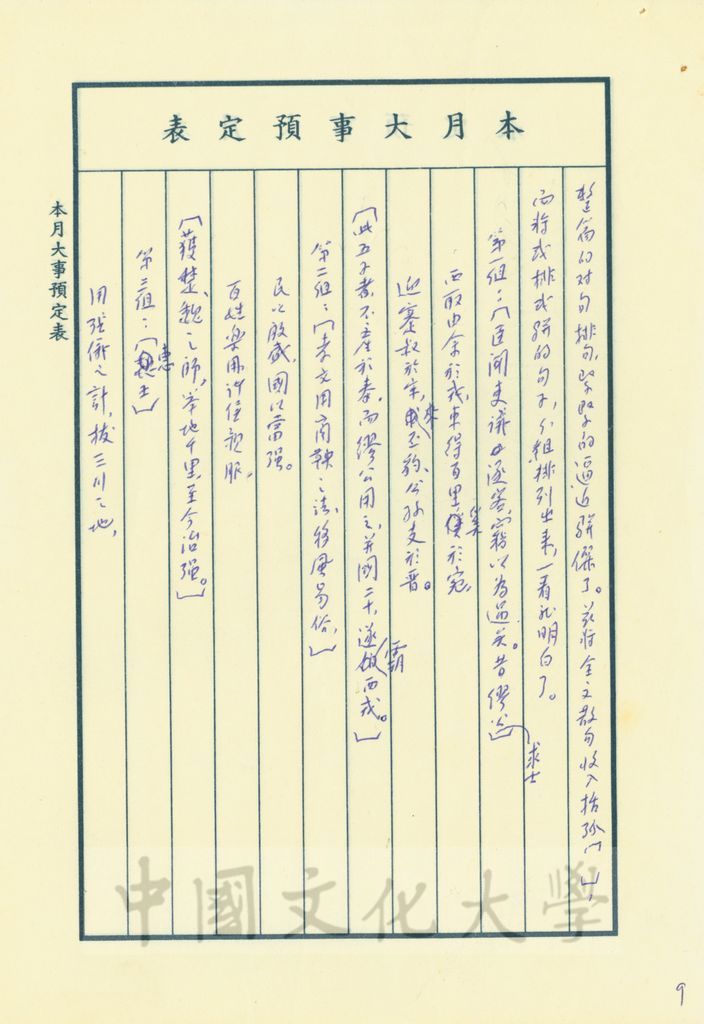 本月大事預定表
整篇的對句排句，緊緊的逼近駢儷了。茲將全文散句收入括弧〔〕，
而將或排或駢的句子，分組排列出來，一看就明白了。
第一組：〔臣聞吏議逐客，竊以為過矣。昔繆公〕求士
西取由余於戎，東得百里奚於宛，
迎蹇叔於宋，來丕豹、公孫支於晉。
〔此五子者，不產於秦，而繆公用之，并國二十，遂霸西戎。〕
第二組：〔孝公用商鞅之法，移風易俗，〕
民以殷盛，國以富强。
百姓樂用，諸侯親服。
〔獲楚、魏之師，舉地千里，至今治强。〕
第三組：〔惠王〕
用張儀之計，拔三川之地，
本月大事預定表
中國文化大學
9